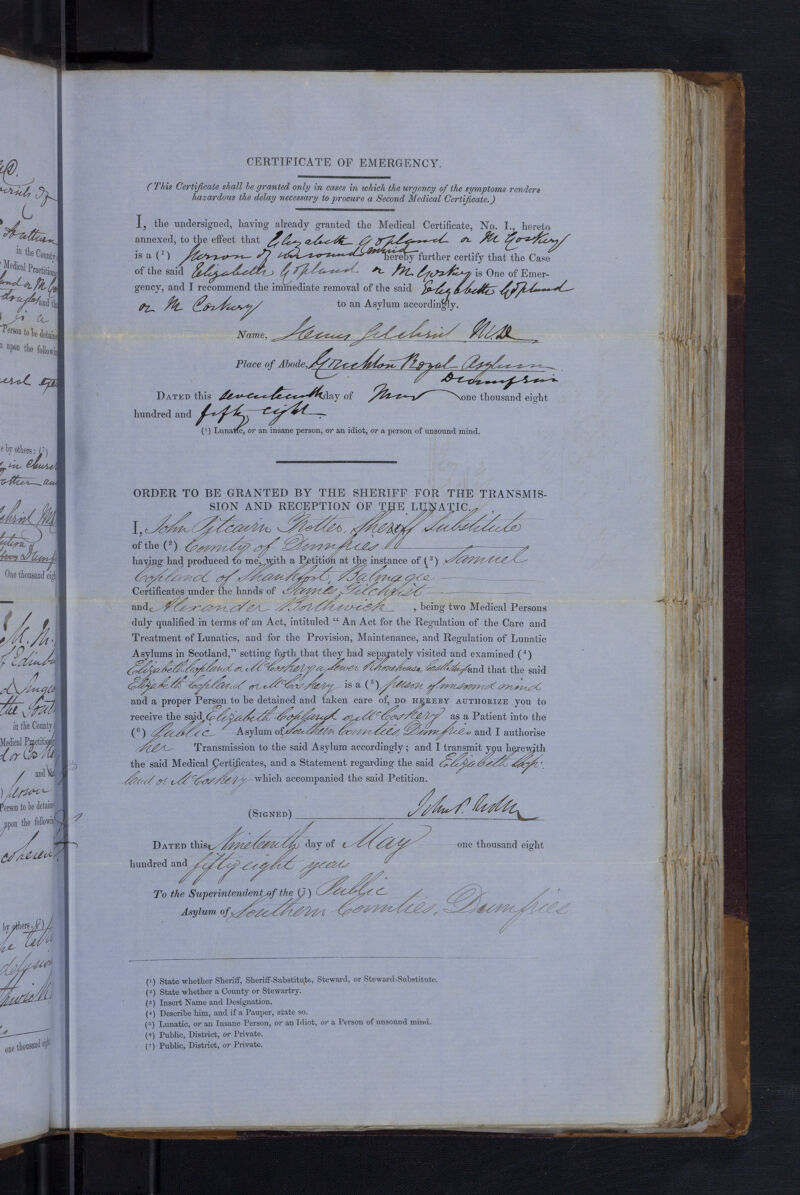 CERTIFICATE OF EMERGENCY.
(This Certificate shall be granted only in cases in which the urgency of the symptoms renders
hazardous the delay necessary to procure a Second Medical Certificate.)
I, the undersigned, having already granted the Medical Certificate, No. I., hereto
annexed, to the effect that Elizabeth Copland or McCoskery
is a (1) person of unsound mind hereby further certify that the Case
of the said Elizabeth Copland or McCoskery is One of Emer-
gency, and I recommend the immediate removal of the said Elizabeth Copland
or McCoskery to an Asylum accordingly.
Name, James Gilchrist M.D.
Place of Abode, Crichton Royal Asylum
Dumfries
DATED this seventeenth day of May one thousand eight
hundred and fifty eight
(1) Lunatic, or an insane person, or an idiot, or a person of unsound mind.
ORDER TO BE GRANTED BY THE SHERIFF FOR THE TRANSMIS-
SION AND RECEPTION OF THE LUNATIC.
I, John Pitcairn Trotter, Sheriff Substitute
of the (2) County of Dumfries
having had produced to me, with a Petition at the instance of (3) Samuel
Copland of Balmagie
Certificates under the hands of James Gilchrist
and Alexander Borthwick, being two Medical Persons
duly qualified in terms of an Act, intituled "An Act for the Regulation of the Care and
Treatment of Lunatics, and for the Provision, Maintenance, and Regulation of Lunatic
Asylums in Scotland," setting forth that they had separately visited and examined (4)
Elizabeth Copland or McCoskery a Sewer Rhonehouse Castle Douglas and that the said
Elizabeth Copland or McCoskery is a (5) person of unsound mind
and a proper Person to be detained and taken care of, DO HEREBY AUTHORIZE you to
receive the said Elizabeth Copland or McCoskery as a Patient into the
(6) Public Asylum of Southern Counties Dumfries and I authorise
her Transmission to the said Asylum accordingly; and I transmit you herewith
the said Medical Certificates, and a Statement regarding the said Elizabeth Cop-
land or McCoskery which accompanied the said Petition.
(SIGNED) John P. Trotter
DATED this Nineteenth day of May one thousand eight
hundred and fifty eight years
To the Superintendent of the (7) Public
Asylum of Southern Counties, Dumfries
(1) State whether Sheriff, Sheriff-Substitute, Steward, or Steward-Substitute.
(2) State whether a County or Stewartry.
(3) Insert Name and Designation.
(4) Describe him, and if a Pauper, state so.
(5) Lunatic, or an Insane Person, or an Idiot, or a Person of unsound mind.
(6) Public, District, or Private.
(7) Public, District, or Private.
in the County
Medical Practitione
Person to be detaine
upon the followi
e by others: (7)
One thousand eigh
in the County
Medical Practition
and
Person to be detaine
upon the followin
by others
one thousand eigh